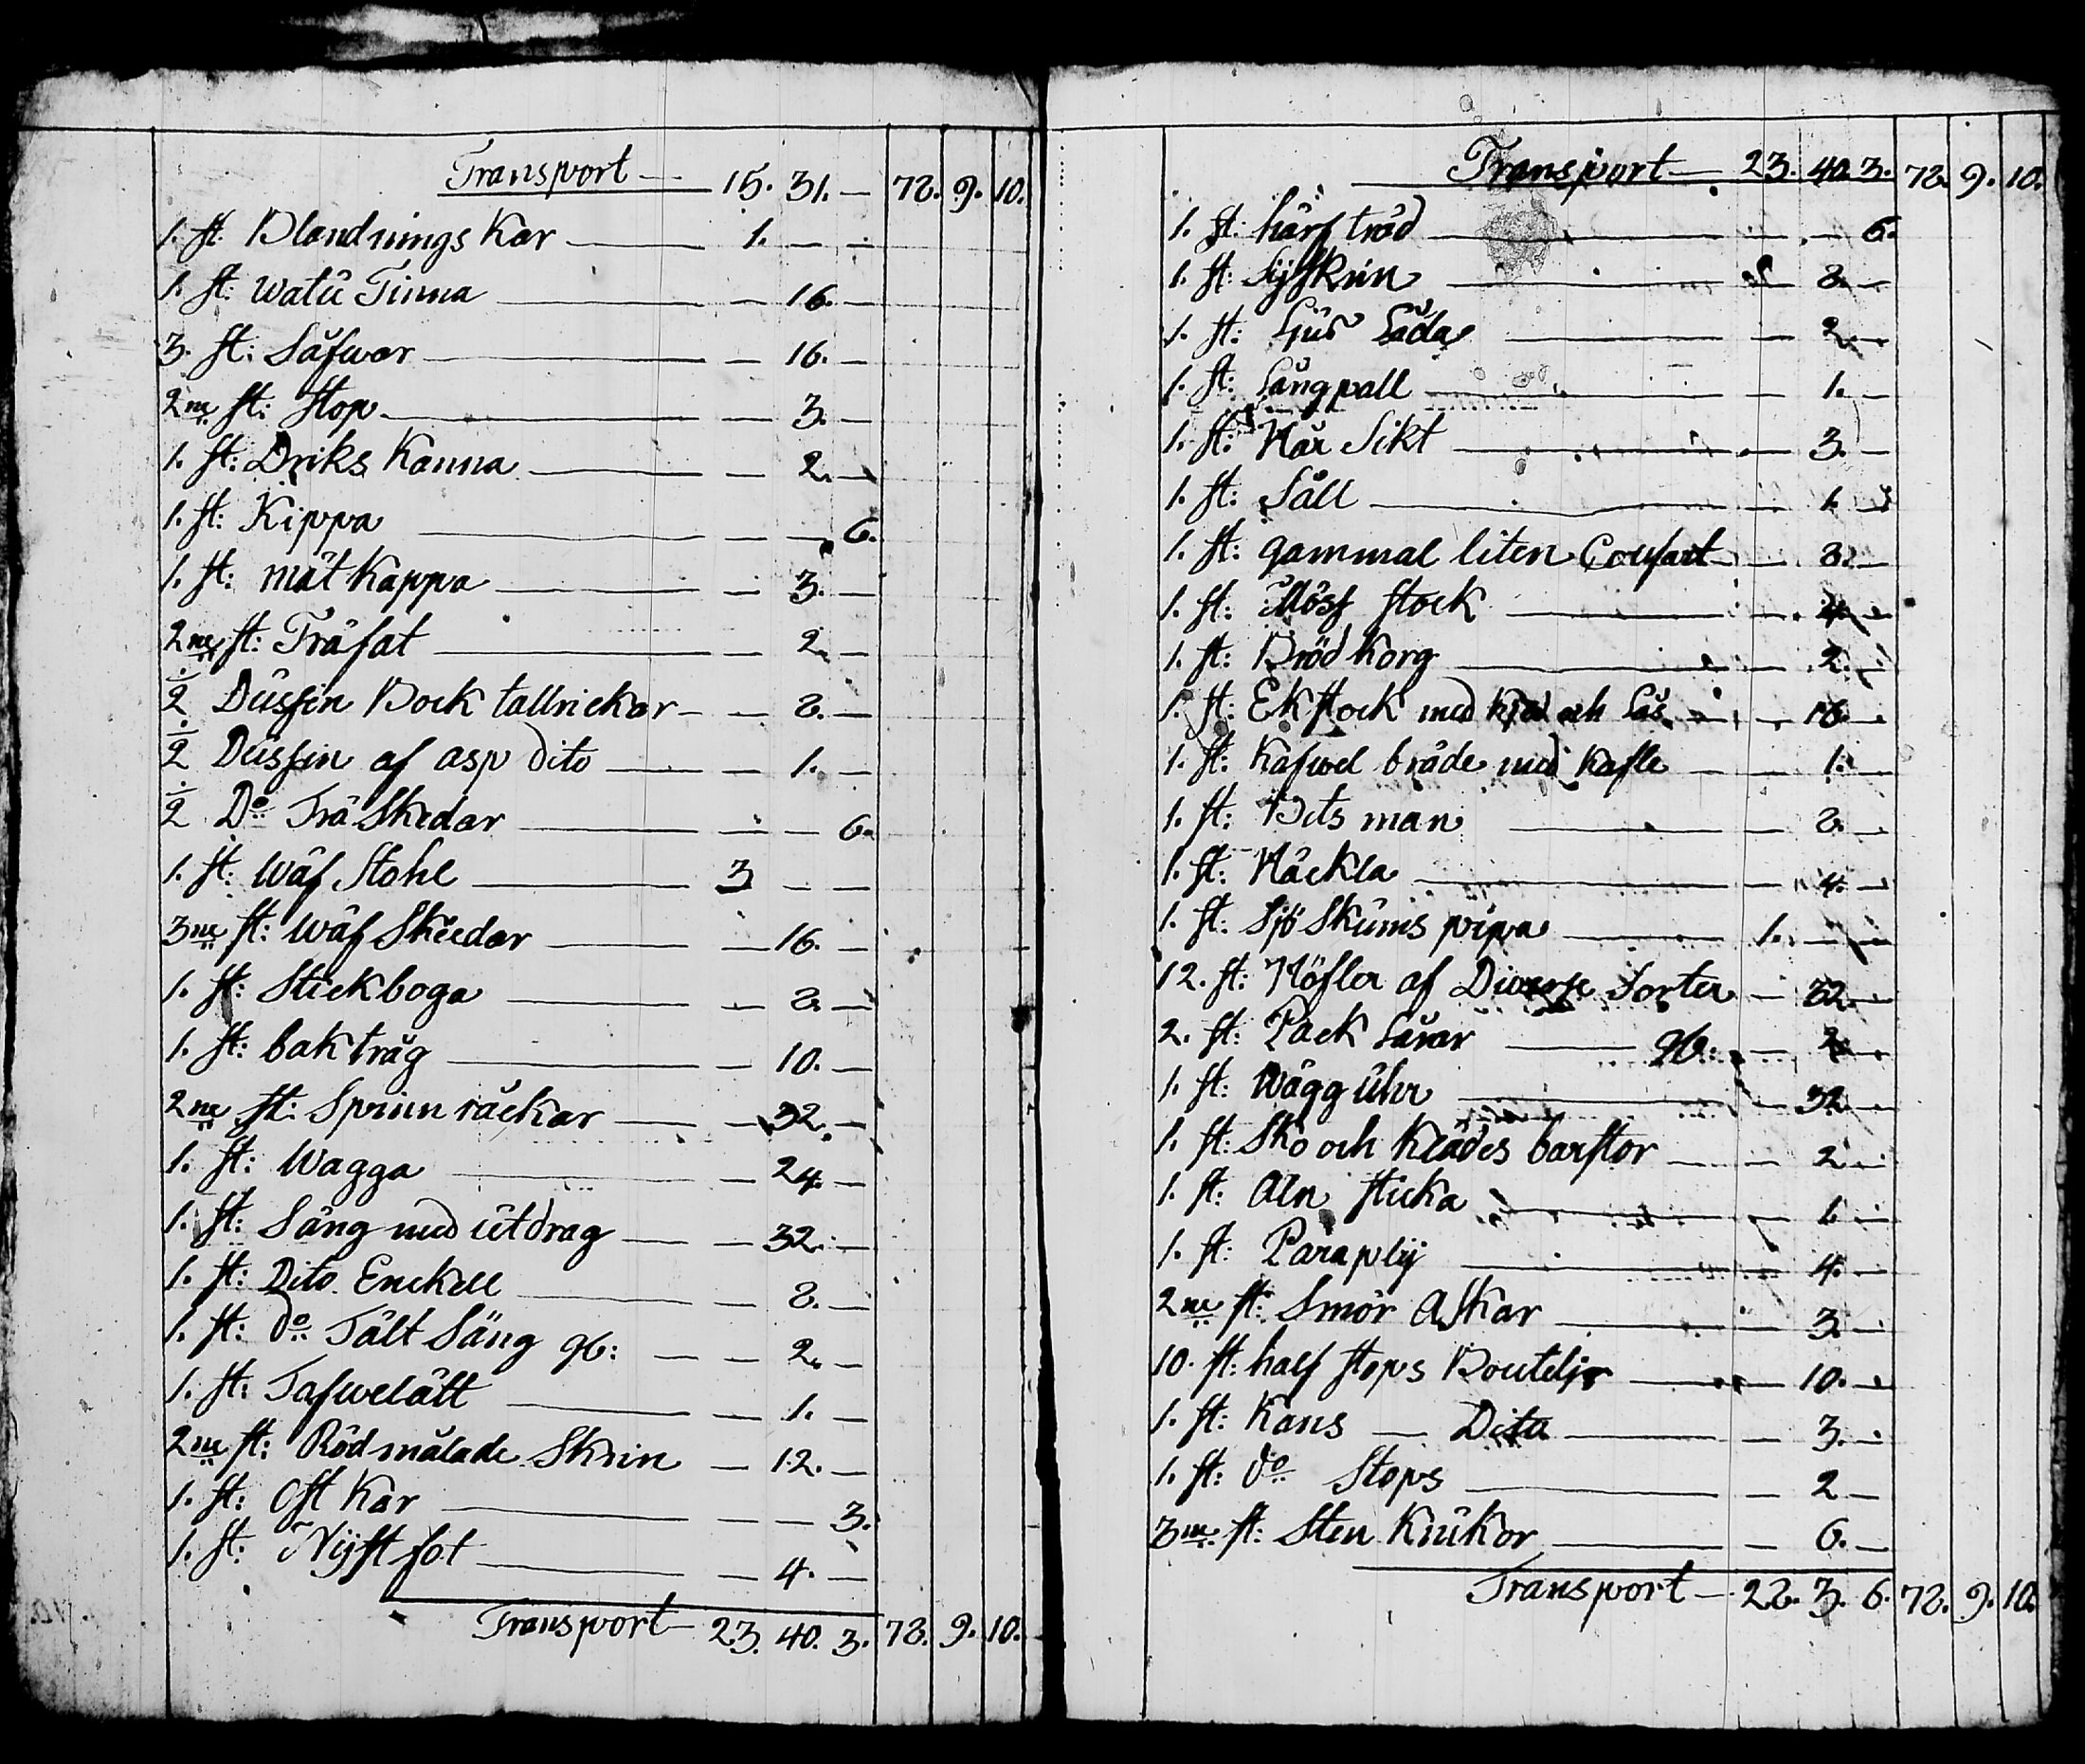 Transport — 15. 31. — 78. 9. 10.
1. st: Blandnings Kar — 1. — —
1. st: watu Tinna — — 16. —
3. st: Såfwar — — 16. —
2ne st: Stop — — 3. —
1. st: Driks Kanna — — 2. —
1. st: Kippa — — — 6.
1. st: måt Kappa — — 3. —
2ne st: Träfat — — 2. —
½ Dussin Bock tallrickar — — 8. —
½ Dussin af asp dito — — 1. —
½ Do Trä Skedar — — — 6.
1. st: Wäf Stohl — 3 — —
3ne st: Wäf Skeedar — — 16. —
1. st: Stickboga — — 8. —
1. st: bak tråg — — 10. —
2ne st: Spinn råckar — — 32. —
1. st: Wagga — — 24. —
1. st: Säng med utdrag — — 32. —
1. st: Dito Enckell — — 8. —
1. st: do Tält Säng gb: — — 2. —
1. st: Tafwelått — — 1. —
2ne st: Röd målade Skrin — 12. —
1. st: Ost Kar — — — 3.
1. st: Nyst fot — — 4. —
Transport — 23. 40. 3. 78. 9. 10.
Transport — 23. 40. 3. 78. 9. 10.
1. st: härf tråd — — — 6.
1. st: Syskrin — — 8. —
1. st: Ljus Låda — — 2. —
1. st: Långpall — — 1. —
1. st: Hår Sikt — — 3. —
1. st: Såll — — 1.
1. st: gammal liten — — 8. —
1. st: Möss stock — — 4. —
1. st: Bröd Korg — — 2. —
1. st: Ekstock med och Lås — — 16. —
1. st: Kafwel bråde med Kafle — — 1. —
1. st: Bets man — — 8. —
1. st: Häckla — — 4. —
1. st: Sjö Skums pipa — 1. — —
12. st: Höfler af Diverse Sorter — 32. —
2. st: Pack Lårar — gb: — 2. —
1. st: Wägg Uhr — — 32. —
1. st: Sko och Klädes barstor — — 2. —
1. st: Aln sticka — — 1. —
1. st: Paraply — — 4. —
2ne st: Smör Askar — — 3. —
10. st: half stops Bouteljr — — 10. —
1. st: Kans — Dito — — 3. —
1. st: do Stops — — 2 —
3ne st: Sten Krukor — — 6. —
Transport — 28. 3. 6. 78. 9. 10.